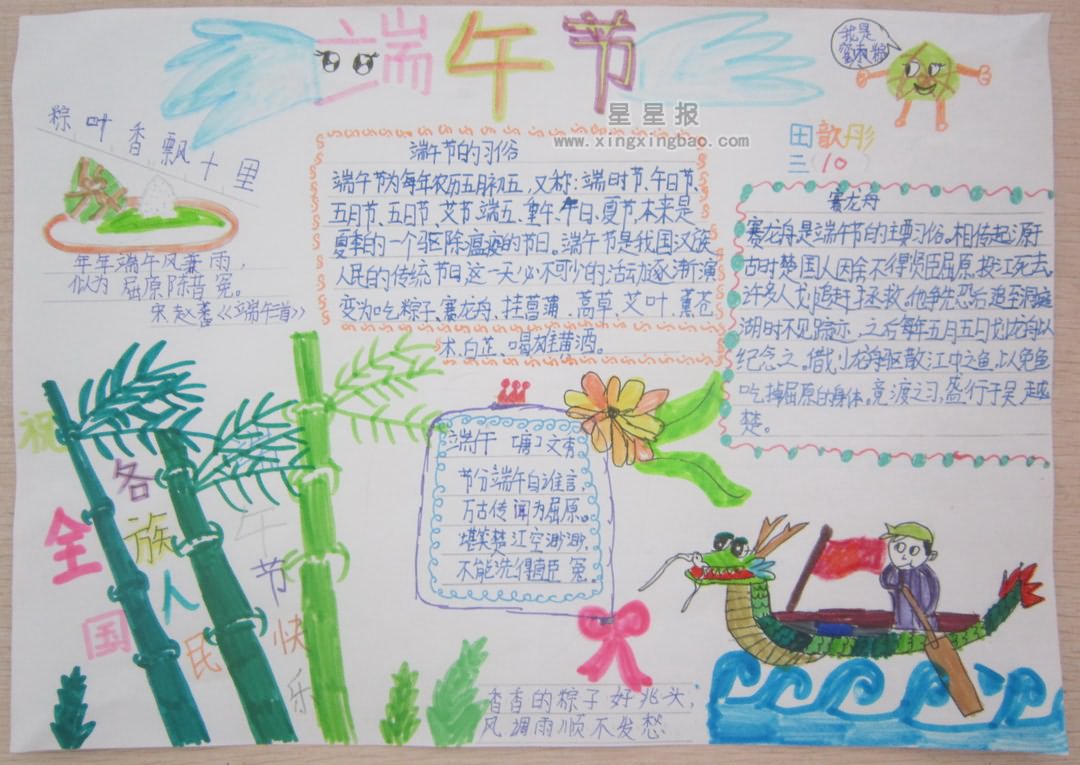 端午节
我是
蜜枣粽
星星报
www.xingxingbao.com
田歆彤
三(10
粽叶香飘十里
年年端午风兼雨,
似为屈原陈昔冤。
宋赵蕃《端午首》
端午节的习俗
端午节为每年农历五月初五,又称:端阳节、午日节、
五月节、五日节、艾节、端五、重午、午日、夏节,本来是
夏季的一个驱除瘟疫的节日。端午节是我国汉族
人民的传统节日这一天必不可少的活动逐渐演
变为吃粽子、赛龙舟、挂菖蒲、蒿草、艾叶、薰苍
术、白芷、喝雄黄酒。
赛龙舟
赛龙舟是端午节的主要习俗。相传起源于
古时楚国人因舍不得贤臣屈原投江死去。
许多人划追赶拯救。他争先恐后追至洞庭
湖时不见踪迹。之后每年五月五日划龙舟以
纪念之。借小龙舟驱散江中之鱼,以免鱼
吃掉屈原的身体。竞渡之习,盛行于吴越
楚。
端午 唐 文秀
节分端午自谁言,
万古传闻为屈原。
堪笑楚江空渺渺,
不能洗得直臣冤。
祝全国各族人民端午节快乐
香香的粽子好兆头,
风调雨顺不发愁